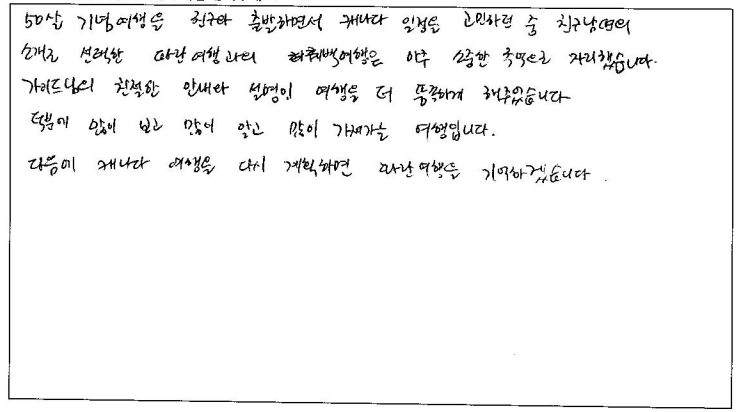 50살 기념여행을 친구와 출발하면서 캐나다 일정을 고민하던 중 친구남편의
소개로 선택한 파란여행과의 퀘백여행은 아주 소중한 추억으로 자리했습니다.
가이드님의 친절한 안내와 설명이 여행을 더 풍족하게 해주었습니다
덕분에 많이 보고 많이 알고 많이 가져가는 여행입니다.
다음에 캐나다 여행을 다시 계획하면 파란여행을 기억하겠습니다.